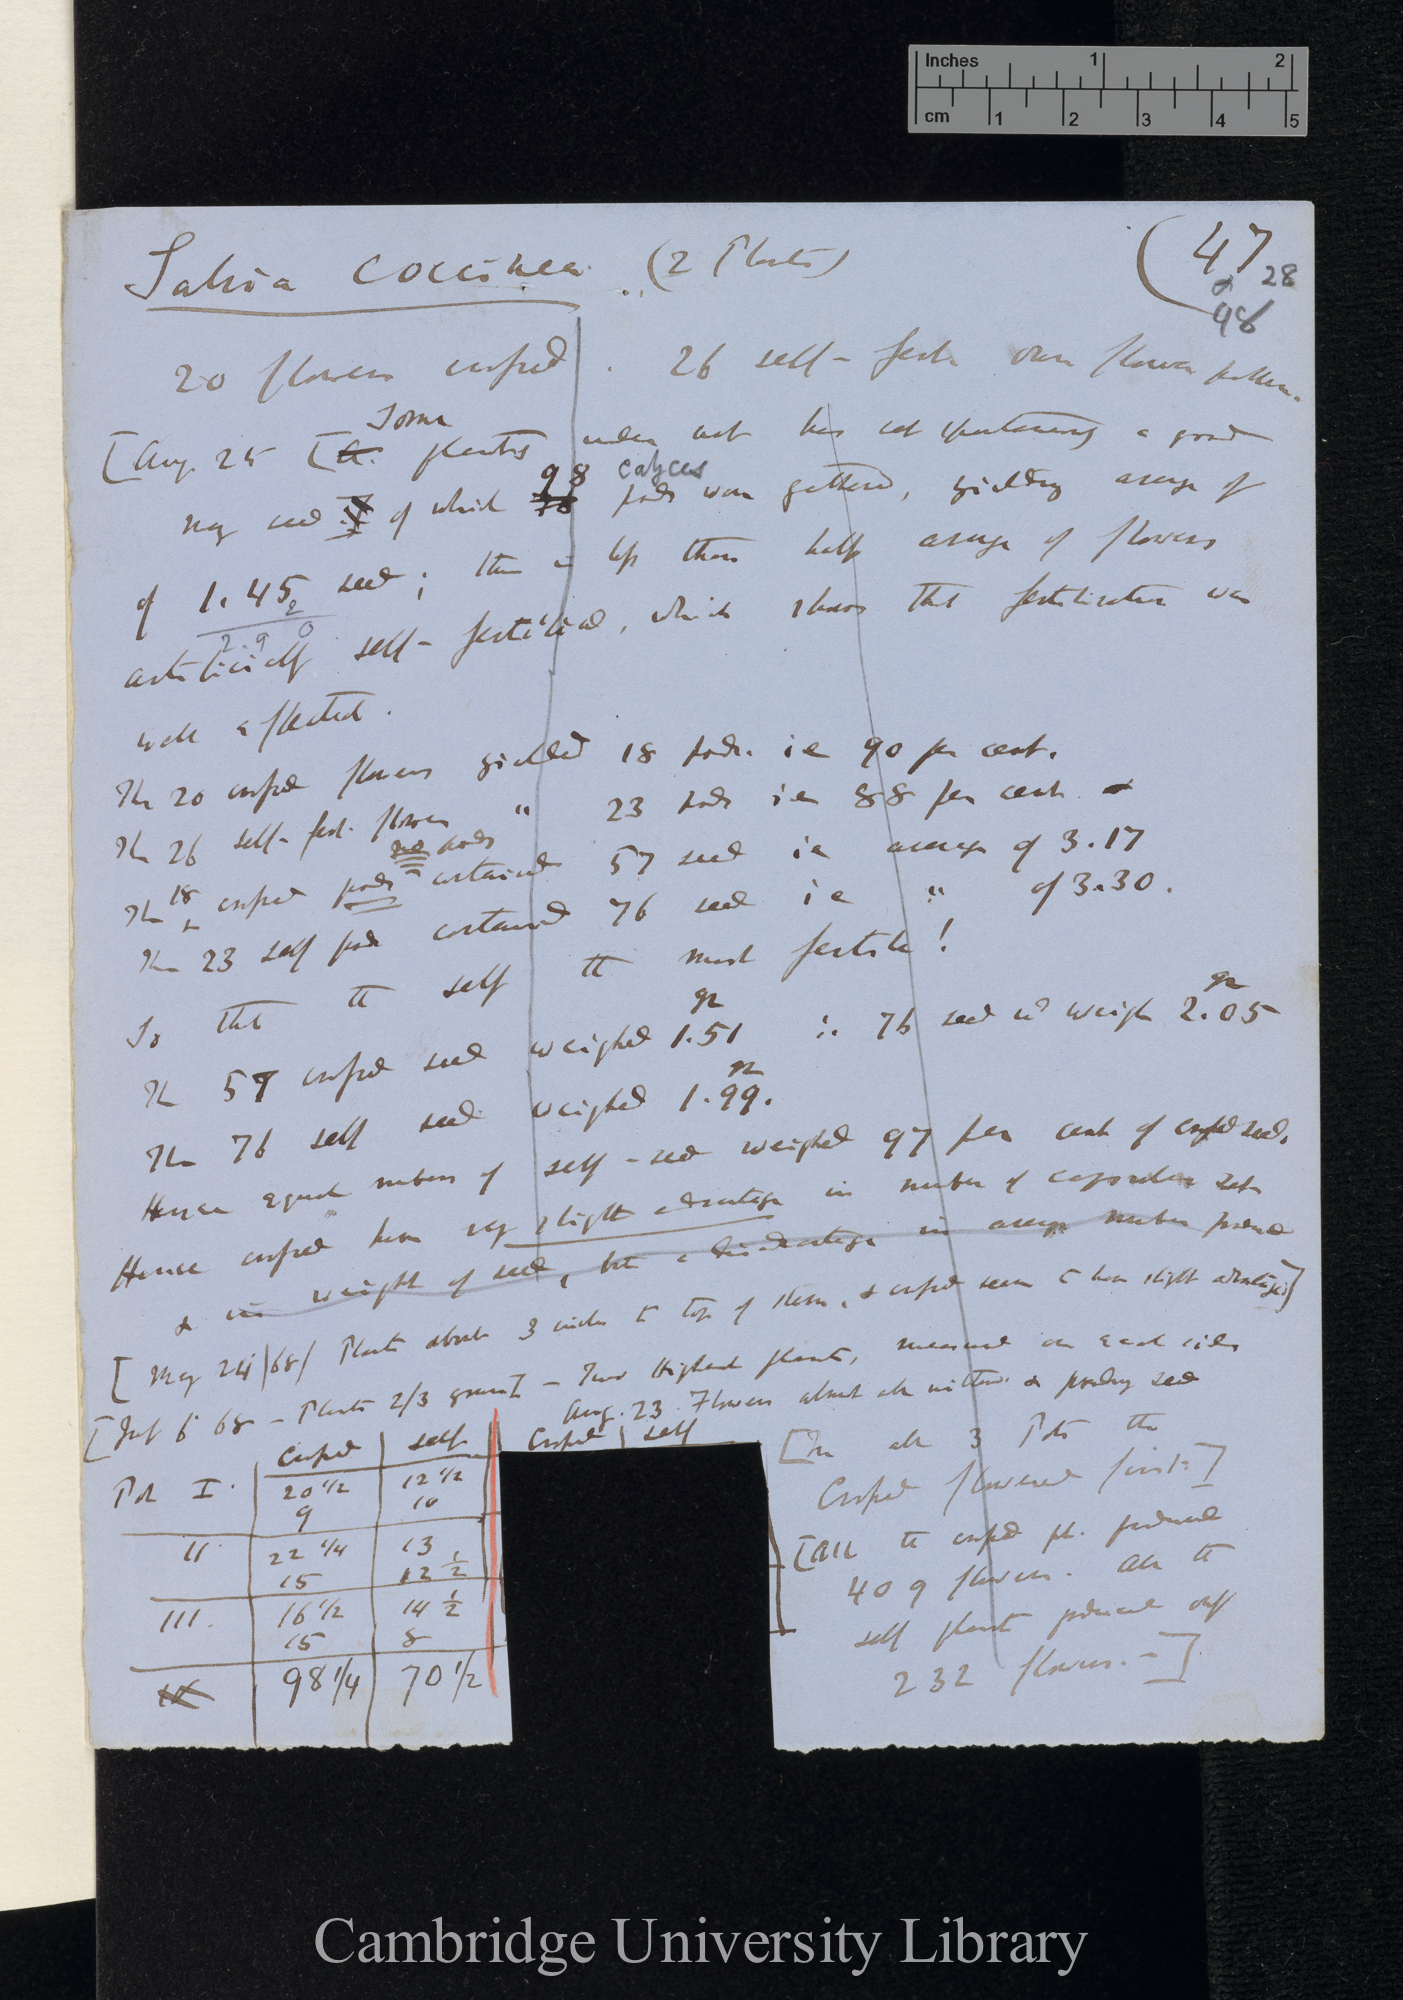 Inches 1 2
cm 1 2 3 4 5
Salvia coccinea (2 Plants)
(47
& 28
48
20 flowers crossed . 26 self-fert. own flower pollen.
Some
[Aug. 25 [A. plants under net has set spontaneously a good
98 calyces
many seed of which 78 pods were gathered, yielding average of
of 1.45 seed; this is less than half average of flowers
2
2.90
artificially self-fertilised, which shows that fertilisation was
well effected.
The 20 crossed flowers yielded 18 pods. ie 90 per cent.
The 26 self-fert. flowers " 23 pods ie 88 per cent
pods
The 18 crossed pods contained 57 seed ie average of 3.17
The 23 self pods contained 76 seed ie " of 3.30.
So that the self the most fertile!
gr gr
The 57 crossed seed weighed 1.51 ∴ 76 seed wd weigh 2.05
gr
The 76 self seed weighed 1.99.
Hence equal numbers of self-seed weighed 97 per cent of crossed seed.
Hence crossed have very slight advantage in number of capsules set
& in weight of seed, but a disadvantage in average number produced
[May 24/68/ Plants about 3 inches to top of stem, & crossed seem to have slight advantage]
[July 6 68 - Plants 2/3 grown] - Two highest plants, measured on each side
Aug. 23. Flowers almost all withered & producing seed
Crossed self Crossed self
Pot I. 20 1/2 12 1/2
9 10
II 22 1/4 13
15 12 1/2
III. 16 1/2 14 1/2
15 8
98 1/4 70 1/2
[In all 3 Pots the
Crossed flowered first.]
[All the crossed pl. produced
409 flowers. All the
self plants produced only
232 flowers.-]
Cambridge University Library